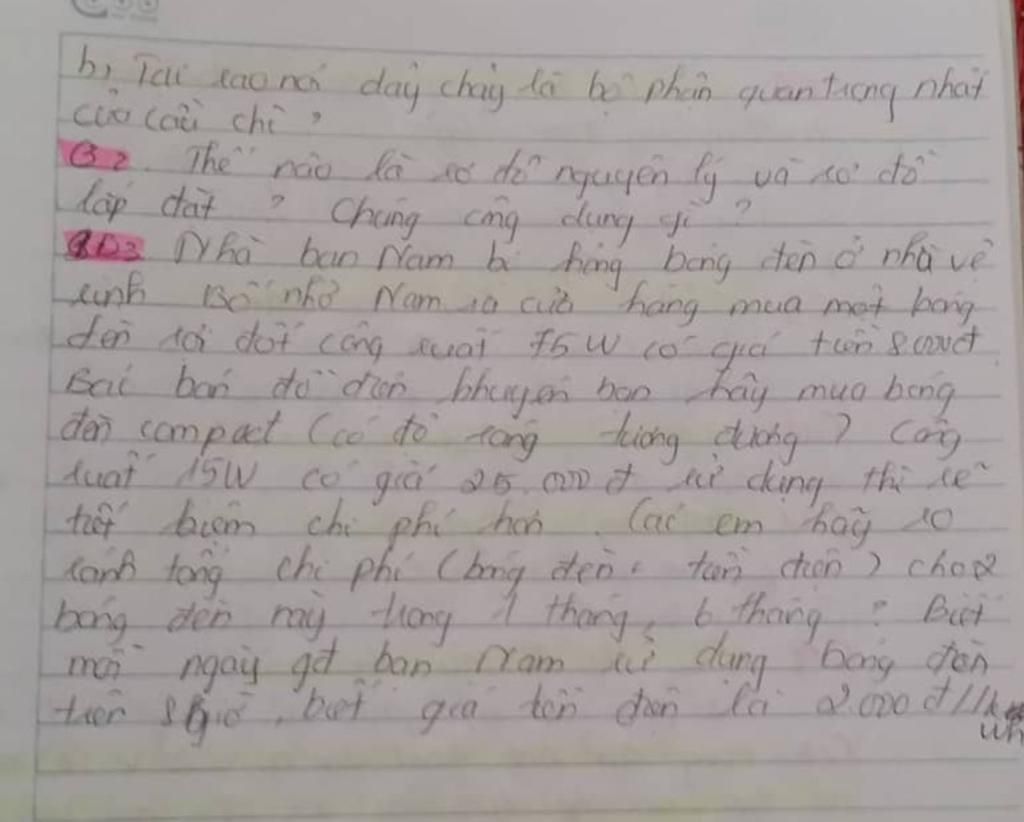 b, Tại sao nói dây chảy là bộ phận quan trọng nhất
của cầu chì ?
B2. Thế nào là sơ đồ nguyên lý và sơ đồ
lắp đặt ? Chúng công dụng gì ?
Nhà bạn Nam bị hỏng bóng đèn ở nhà vệ
sinh Bố nhờ Nam ra cửa hàng mua một bóng
đèn sợi đốt công suất 75W có giá tiền 8.000đ
Bác bán đồ điện khuyên bạn hãy mua bóng
đèn compact (có độ sáng tương đương) Công
suất 15W có giá 25.000đ sử dụng thì sẽ
tiết kiệm chi phí hơn. Các em hãy so
sánh tổng chi phí (bóng đèn, tiền điện) cho 2
bóng đèn này trong 1 tháng, 6 tháng ? Biết
mỗi ngày gđ bạn Nam sử dụng bóng đèn
trên 8 giờ, biết giá tiền điện là 2.000đ/1k
wh